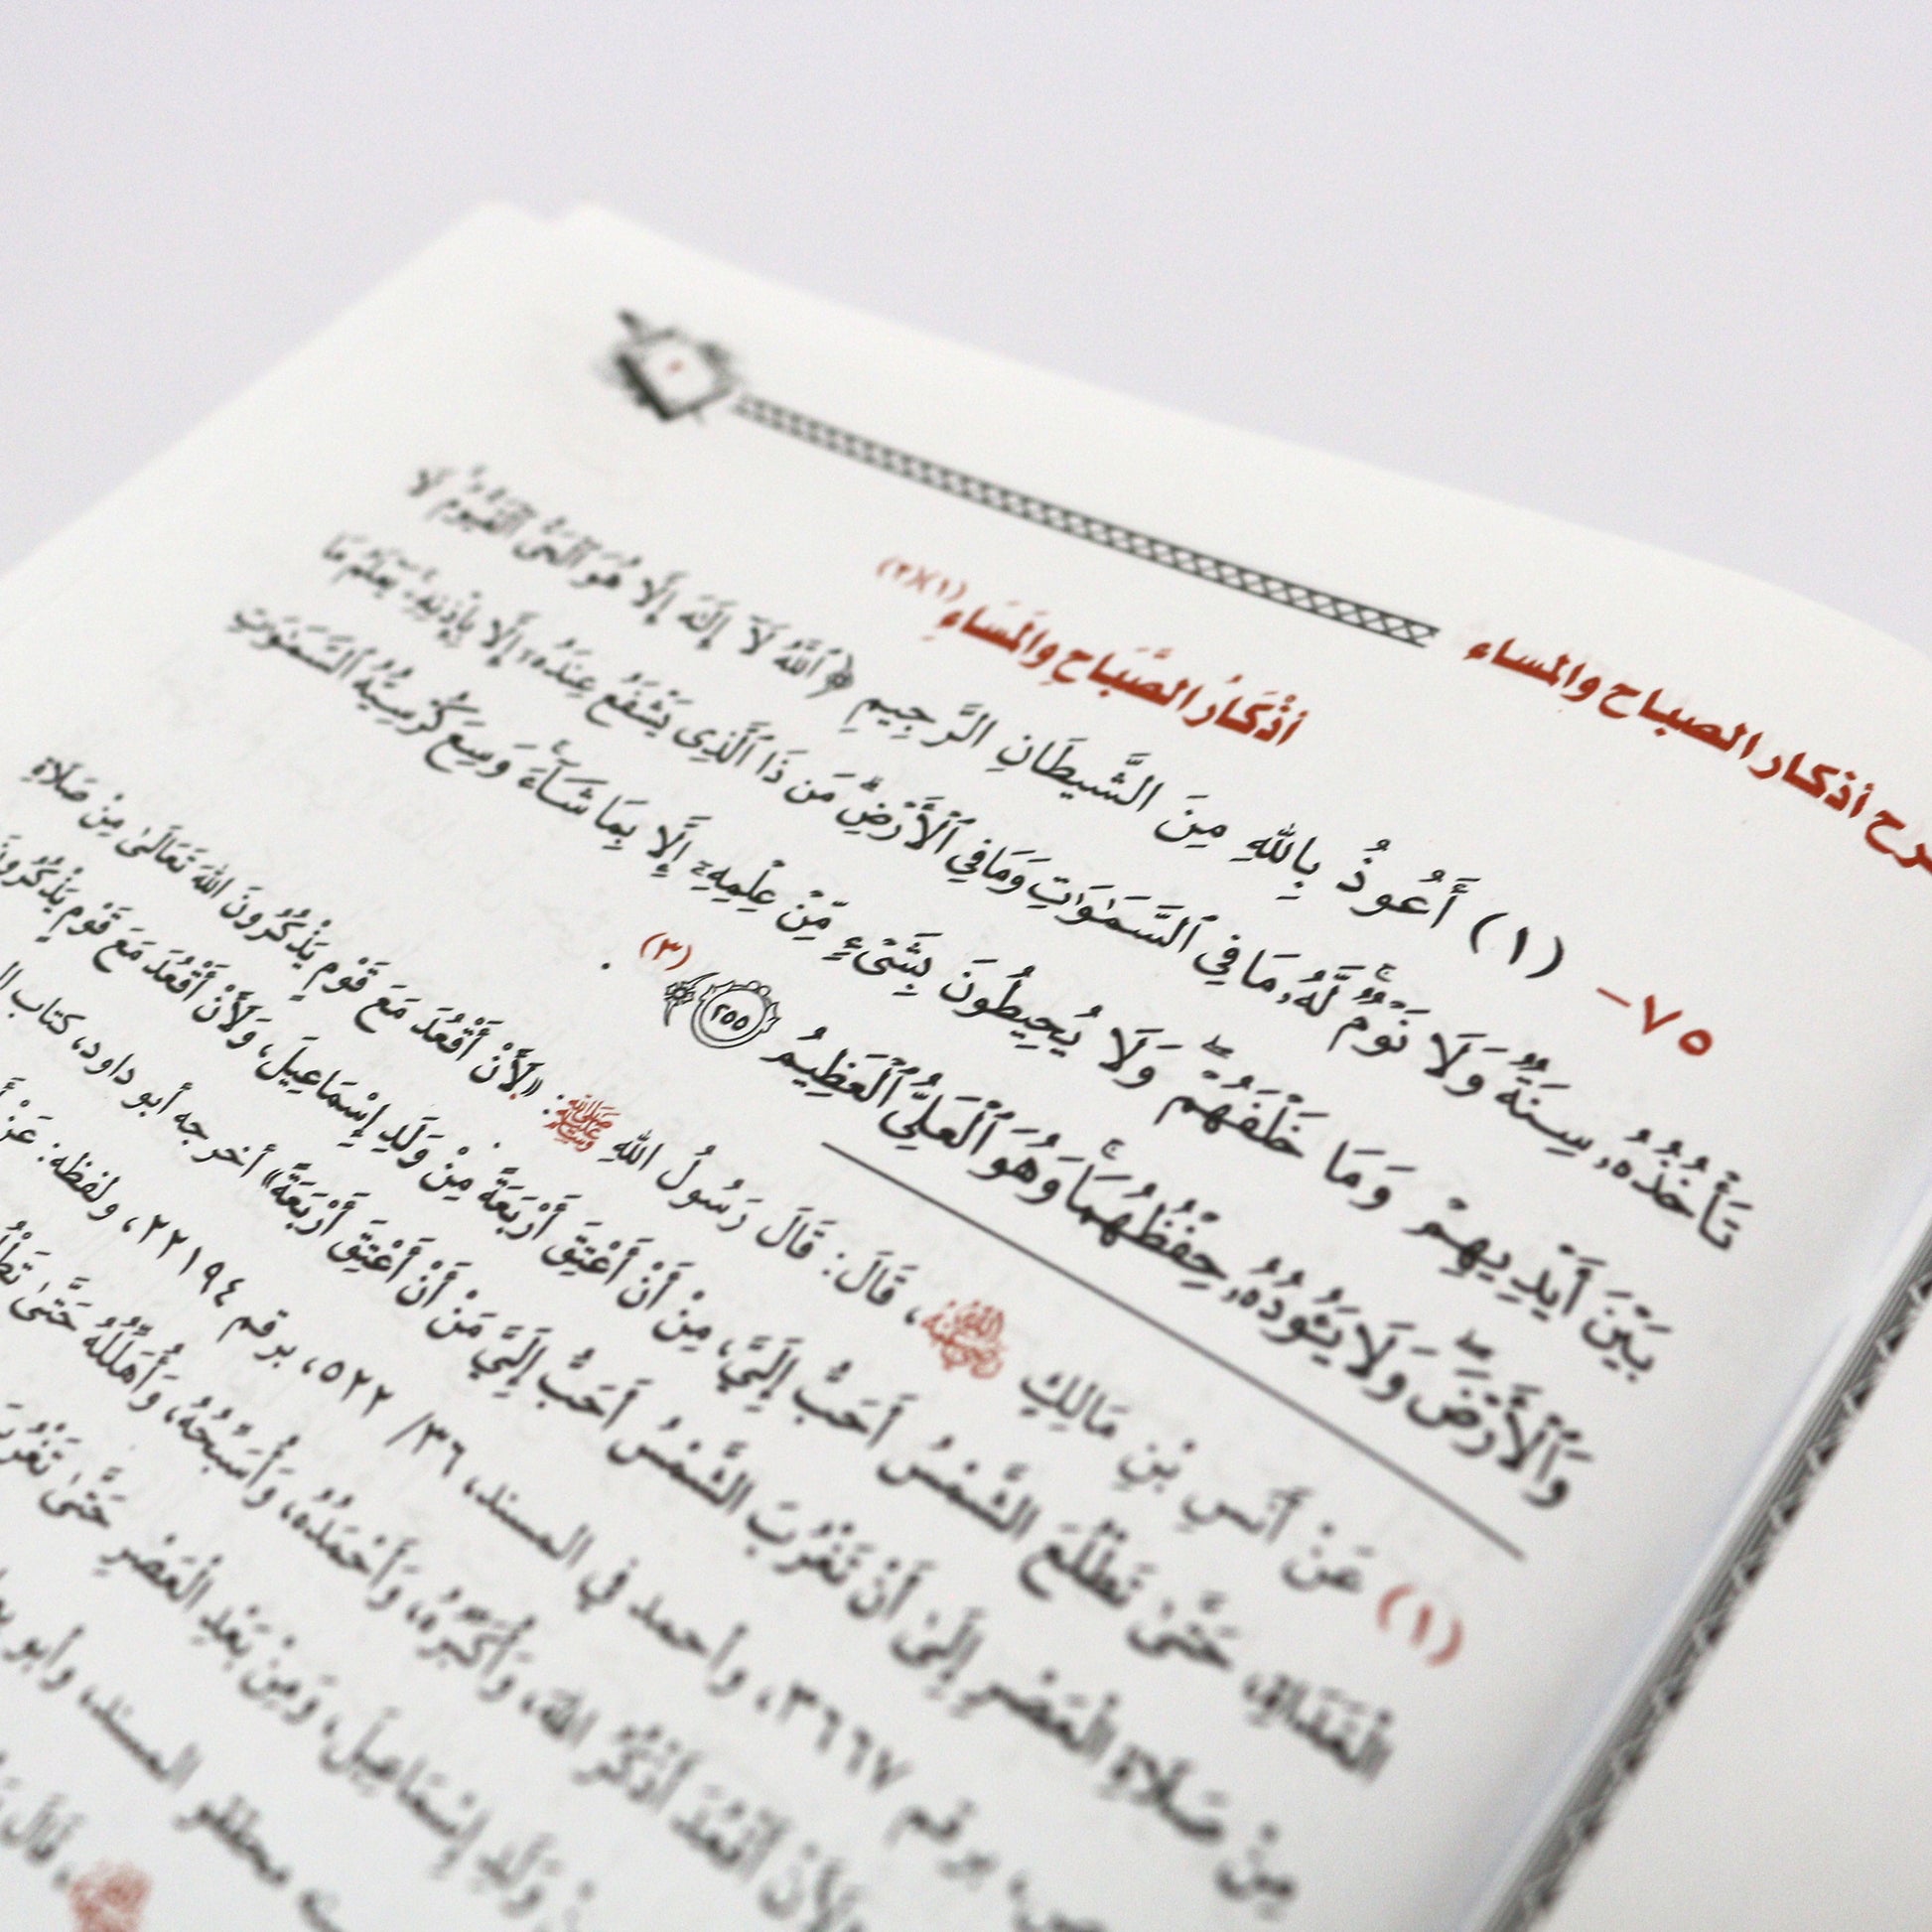 شرح أذكار الصباح والمساء
أَذْكَارُ الصَّبَاحِ وَالْمَسَاءِ (١)(٢)
٧٥- (١) أَعُوذُ بِاللهِ مِنَ الشَّيطَانِ الرَّجِيمِ ﴿ٱللَّهُ لَآ إِلَٰهَ إِلَّا هُوَ ٱلۡحَيُّ ٱلۡقَيُّومُۚ لَا
تَأۡخُذُهُۥ سِنَةٞ وَلَا نَوۡمٞۚ لَّهُۥ مَا فِي ٱلسَّمَٰوَٰتِ وَمَا فِي ٱلۡأَرۡضِۗ مَن ذَا ٱلَّذِي يَشۡفَعُ عِندَهُۥٓ إِلَّا بِإِذۡنِهِۦۚ يَعۡلَمُ مَا
بَيۡنَ أَيۡدِيهِمۡ وَمَا خَلۡفَهُمۡۖ وَلَا يُحِيطُونَ بِشَيۡءٖ مِّنۡ عِلۡمِهِۦٓ إِلَّا بِمَا شَآءَۚ وَسِعَ كُرۡسِيُّهُ ٱلسَّمَٰوَٰتِ
وَٱلۡأَرۡضَۖ وَلَا يَـُٔودُهُۥ حِفۡظُهُمَاۚ وَهُوَ ٱلۡعَلِيُّ ٱلۡعَظِيمُ ٢٥٥﴾ (٣) .
(١) عَنْ أَنَسِ بْنِ مَالِكٍ رضي الله عنه، قَالَ: قَالَ رَسُولُ اللهِ ﷺ: «لَأَنْ أَقْعُدَ مَعَ قَوْمٍ يَذْكُرُونَ اللهَ تَعَالَىٰ مِنْ صَلَاةِ
الْغَدَاةِ، حَتَّىٰ تَطْلُعَ الشَّمْسُ أَحَبُّ إِلَيَّ، مِنْ أَنْ أُعْتِقَ أَرْبَعَةً مِنْ وَلَدِ إِسْمَاعِيلَ، وَلَأَنْ أَقْعُدَ مَعَ قَوْمٍ يَذْكُرُونَ
مِنْ صَلَاةِ الْعَصْرِ إِلَىٰ أَنْ تَغْرُبَ الشَّمْسُ أَحَبُّ إِلَيَّ مَنْ أَنْ أُعْتِقَ أَرْبَعَةً» أخرجه أبو داود، كتاب
برقم ٣٦٦٧، وأحمد في المسند، ٣٦/ ٥٢٢، برقم ٢٢١٩٤، ولفظه: عَنْ
لَأَنْ أَقْعُدَ أَذْكُرُ اللهَ، وَأُكَبِّرُهُ، وَأَحْمَدُهُ، وَأُسَبِّحُهُ، وَأُهَلِّلُهُ حَتَّىٰ
وَلَدِ إِسْمَاعِيلَ، وَمِنْ بَعْدِ الْعَصْرِ حَتَّىٰ تَغْرُبَ
محققو المسند، وأبو
قَالَ